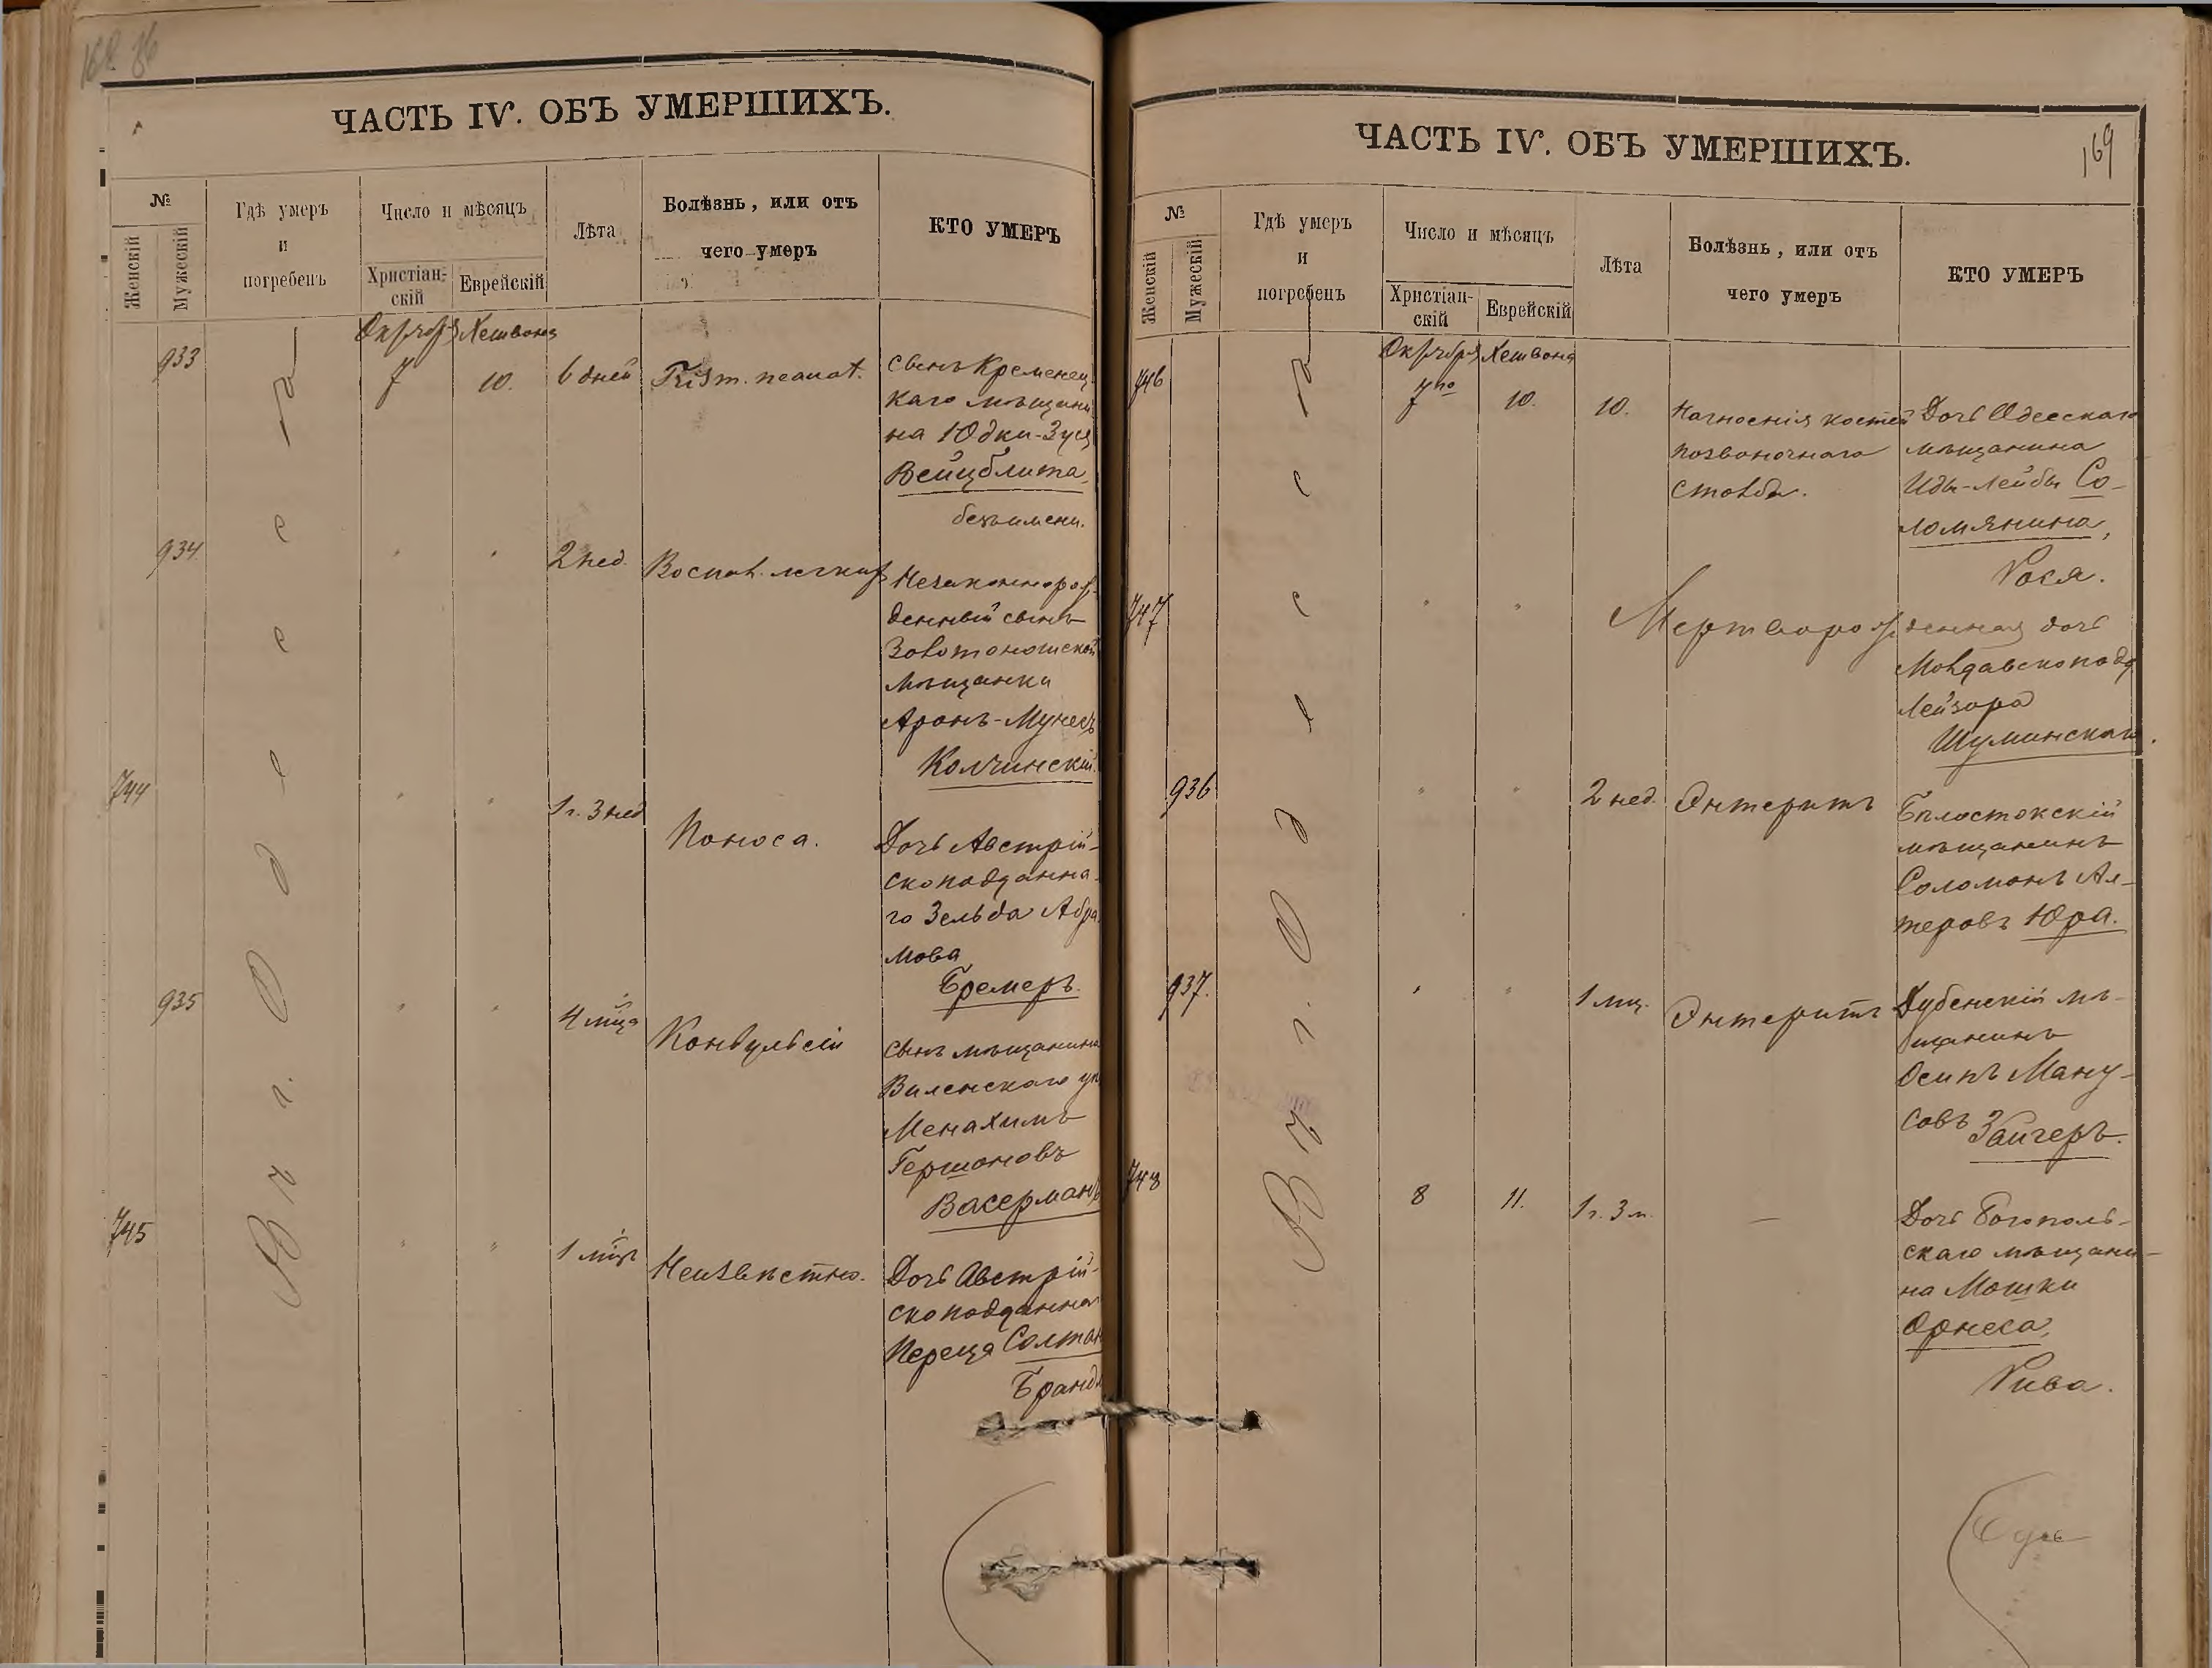 ЧАСТЬ IV. ОБЪ УМЕРШИХЪ.
№
Женскій
Мужескій
Гдѣ умеръ
и
погребенъ
Число и мѣсяцъ
Христіан-
скій
Еврейскій
Лѣта
Болѣзнь, или отъ
чего умеръ
КТО УМЕРЪ
Октября Хешвона
933
7
10.
6 дней
Trism. neonat.
Сынъ Кременец
каго мѣщани
на Юдки-Зуся
Вейцблита,
безъ имени.
934
" "
2 нед.
Воспал. легких
Незаконнорож-
денный сынъ
Золотоношской
мѣщанки
Аронъ-Мунесъ
Колчинскій.
744
" "
1 г. 3 нед
Поноса.
Дочь Австрій-
скоподданна-
го Зельда Абра
мова
Бремеръ.
935
" "
4 мца
Конвульсіи
Сынъ мѣщанина
Виленскаго
Менахимъ
Гершоновъ
Васерманъ
745
" "
1 мцъ
Неизвѣстно.
Дочь Австрій-
скоподданна
Переца Солтан
Брандл
Въ г. Одессѣ
ЧАСТЬ IV. ОБЪ УМЕРШИХЪ.
169
№
Женскій
Мужескій
Гдѣ умеръ
и
погребенъ
Число и мѣсяцъ
Христіан-
скій
Еврейскій
Лѣта
Болѣзнь, или отъ
чего умеръ
КТО УМЕРЪ
Октября Хешвона
746
7го
10.
10.
Нагноенія костей
позвоночнаго
столба.
Дочь Одесскаго
мѣщанина
Иды-Лейбы Со-
ломянина,
Рося.
747
" "
Мертворожденная дочь
Молдавскоподд.
Лейзора
Шуминскаго.
936
" "
2 нед.
Энтеритъ
Бѣлостокскій
мѣщанинъ
Соломонъ Ал-
теровъ Юра.
937.
" "
1 мц.
Энтеритъ
Дубенскій мѣ-
щанинъ
Осипъ Ману-
совъ Зайгеръ.
748
8
11.
1 г. 3 м.
—
Дочь Богополь-
скаго мѣщани-
на Мошки
Орнеса,
Рива.
Въ г. Одессѣ